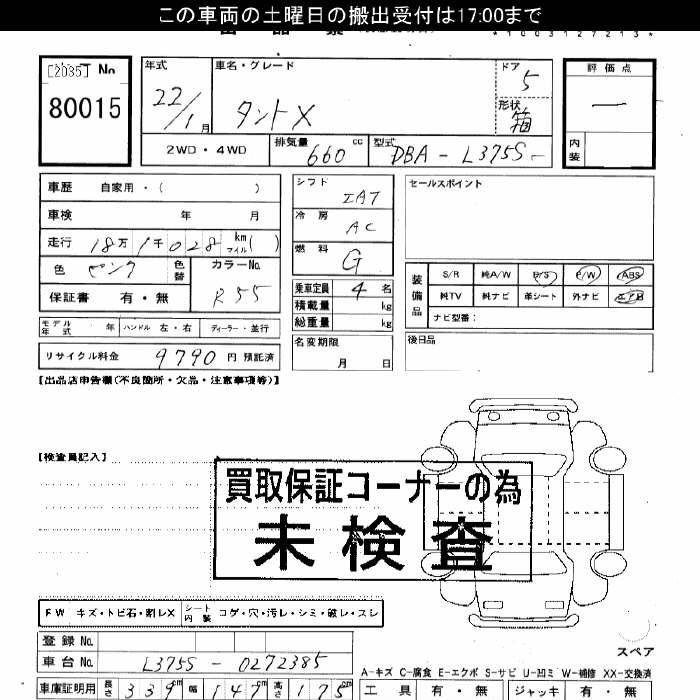 この車両の土曜日の搬出受付は17:00まで
*1003127213*
[2035] No
80015
年式 22/1月
車名・グレード タントX
ドア 5
形状 箱
評価点 —
内装
2WD・4WD
排気量 660 cc
型式 DBA-L375S-
車歴 自家用・( )
車検 年 月
走行 18万1千028 km マイル( )
色 ピンク 色替
カラーNo. R55
保証書 有・無
モデル年式 年 ハンドル 左・右 ディーラー・並行
リサイクル料金 9790円 預託済
シフト IAT
冷房 AC
燃料 G
乗車定員 4名
積載量 kg
総重量 kg
名変期限 月 日
セールスポイント
装備品
S/R 純A/W P/S P/W ABS
純TV 純ナビ 革シート 外ナビ エアB
ナビ型番:
後日品
【出品店申告欄(不良箇所・欠品・注意事項等)】
【検査員記入】
買取保証コーナーの為
未検査
FW キズ・トビ石・割レX シート内装 コゲ・穴・汚レ・シミ・破レ・スレ
登録No.
車台No. L375S-0272385
車庫証明用 長さ 339cm 幅 147cm 高さ 175cm
スペア
A-キズ C-腐食 E-エクボ S-サビ U-凹ミ W-補修 XX-交換済
工具 有・無 ジャッキ 有・無